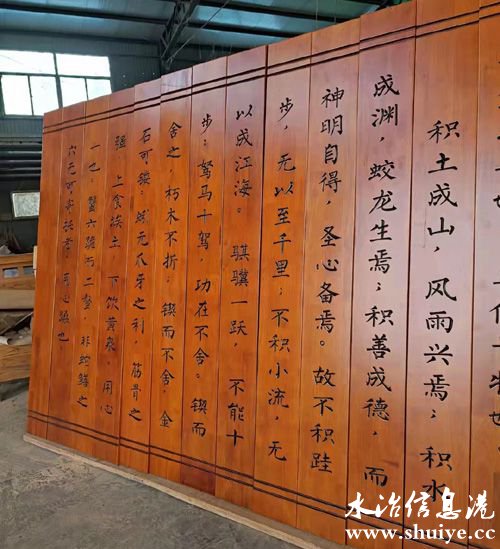 积土成山，风雨兴焉；积水
成渊，蛟龙生焉；积善成德，而
神明自得，圣心备焉。故不积跬
步，无以至千里；不积小流，无
以成江海。骐骥一跃，不能十
步；驽马十驾，功在不舍。锲而
舍之，朽木不折；锲而不舍，金
石可镂。蚓无爪牙之利，筋骨之
强，上食埃土，下饮黄泉，用心
一也。蟹六跪而二螯，非蛇鳝之
穴无可寄托者，用心躁也
水冶信息港
www.shuiye.cc